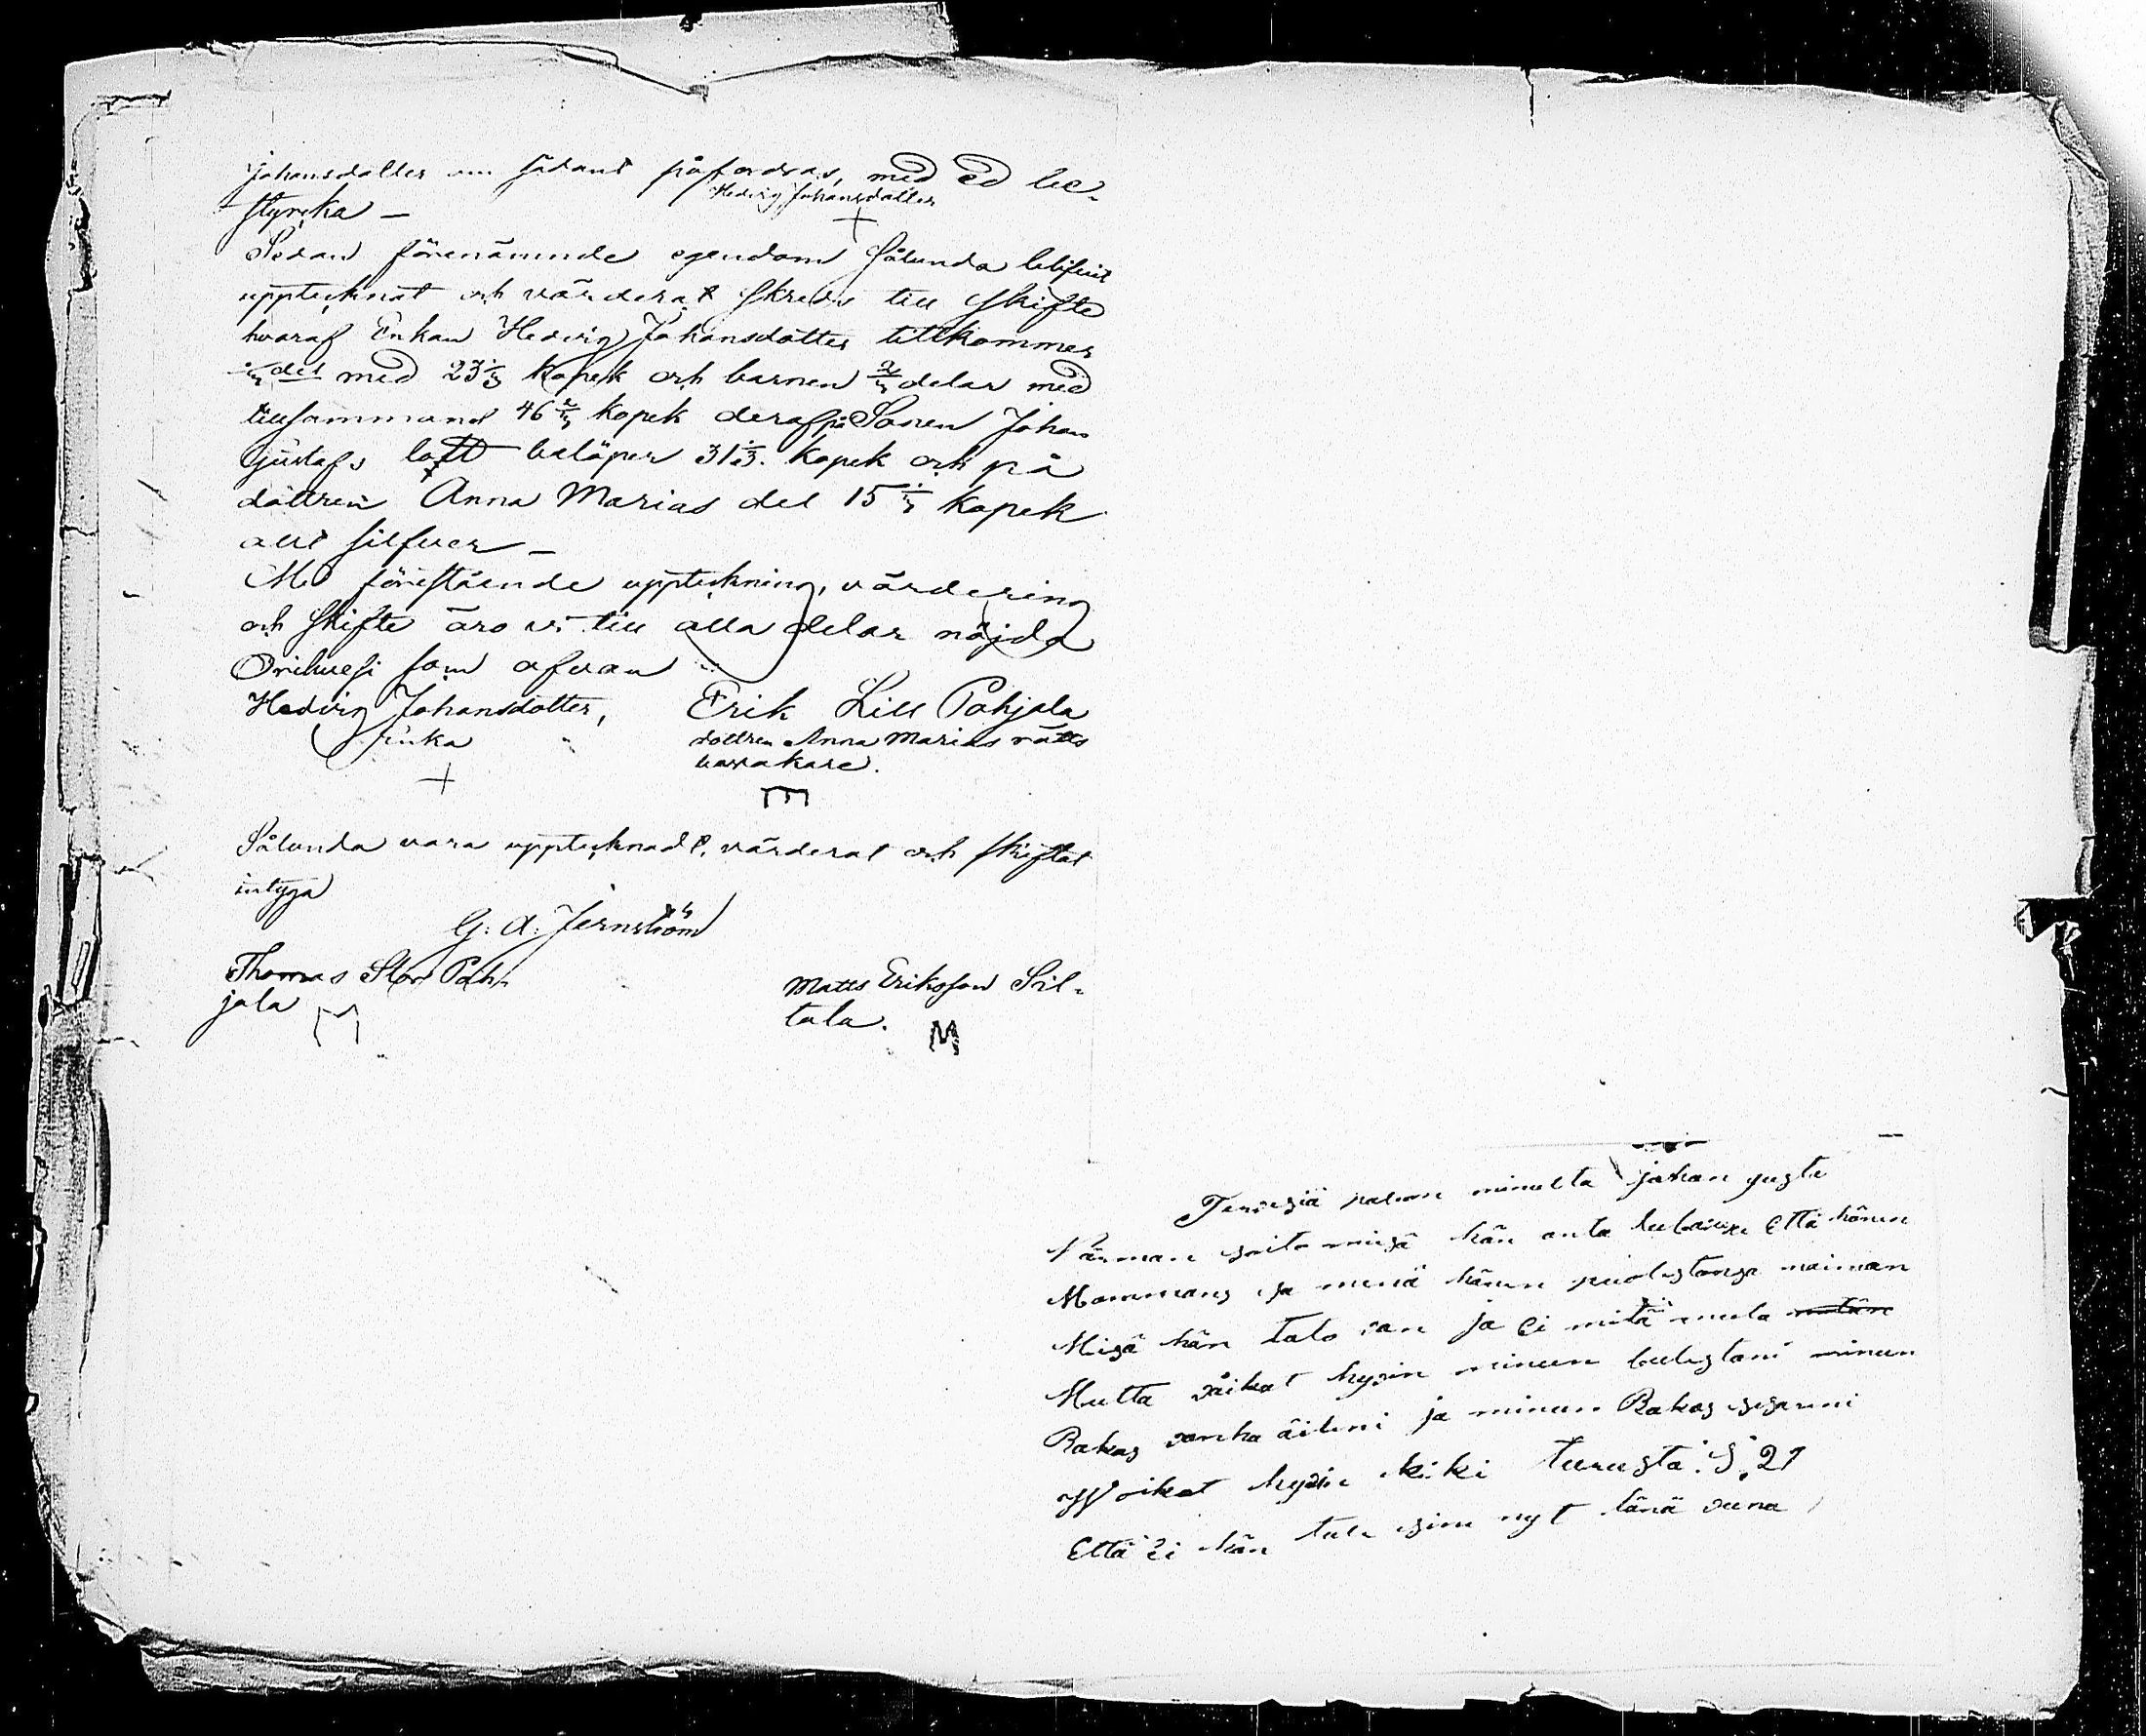 Johansdotter om sådant påfordras, med Ed be-
styrcka —
Hedvig Johansdotter
Sedan förenämnde egendom sålunda blifvit
upptecknat och värderat skreds till skifte
hvaraf Enkan Hedvig Johansdotter tillkommer
1/3 del med 23 1/3 kopek och barnen 2/3 delar med
tillsammans 46 2/3 kopek deraf på Sonen Johan
Gustafs lott belöper 31 1/3. kopek och på
dottren Anna Marias del 15 1/3 kopek
allt silfver —
Med föreståénde uppteckning, värdering
och skifte äro vi till alla delar nöjda
Orihvesi som ofvan
Hedvig Johansdotter,
enka
Erik Lill Pohjala
dottren Anna Marias rätts
bevakare.
Sålunda vara upptecknadt, värderat och skiftat
intyga
G. A. Jernström
Thomas Stor Poh-
jala
Matts Eriksson Sil-
tala. M
Terveisiä paljon minulta johan gusta
hän anta luba Että hänen
Mammans ja meniä hänen puolestansa naiman
Misä hän talo van ja Ei mitä muula mitän
Mutta våikat hyvin minun buolestani minun
Rakas vanha äiteni ja minun Rakas sisareni
Woikat hyvin kiki Turusta. S. 21
Että Ei hän tule sinu nyt tänä vuna